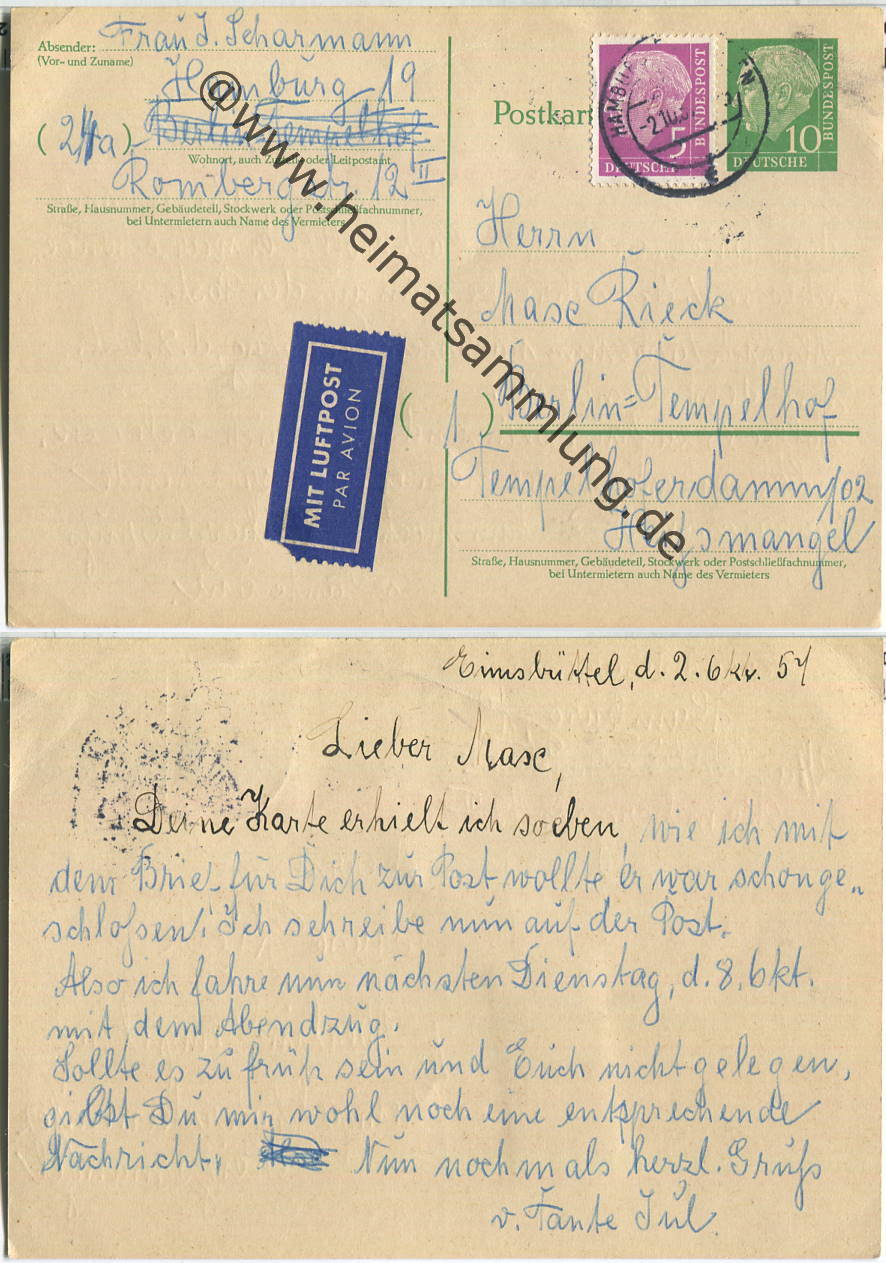 Absender: Frau J. Scharmann
(Vor- und Zuname)
Hamburg 19
(24a) Berlin Tempelhof
Wohnort, auch Zustell- oder Leitpostamt
Rombergstr 12 II
Straße, Hausnummer, Gebäudeteil, Stockwerk oder Postschließfachnummer,
bei Untermietern auch Name des Vermieters
MIT LUFTPOST
PAR AVION
Postkarte
5
DEUTSCHE
BUNDESPOST
10
DEUTSCHE
BUNDESPOST
HAMBURG
-2.10.5
Herrn
Maxe Rieck
(1) Berlin=Tempelhof
Tempelhoferdamm 102
Heißmangel
Straße, Hausnummer, Gebäudeteil, Stockwerk oder Postschließfachnummer,
bei Untermietern auch Name des Vermieters
@www.heimatsammlung.de
Eimsbüttel, d. 2. Okt. 57
Lieber Maxe,
Deine Karte erhielt ich soeben, wie ich mit
dem Brief für Dich zur Post wollte er war schon ge=
schloßen. Ich schreibe nun auf der Post.
Also ich fahre nun nächsten Dienstag, d. 8. Okt.
mit dem Abendzug.
Sollte es zu früh sein und Euch nicht gelegen,
gibst Du mir wohl noch eine entsprechende
Nachricht. Nun nochmals herzl. Gruß
v. Tante Jul.